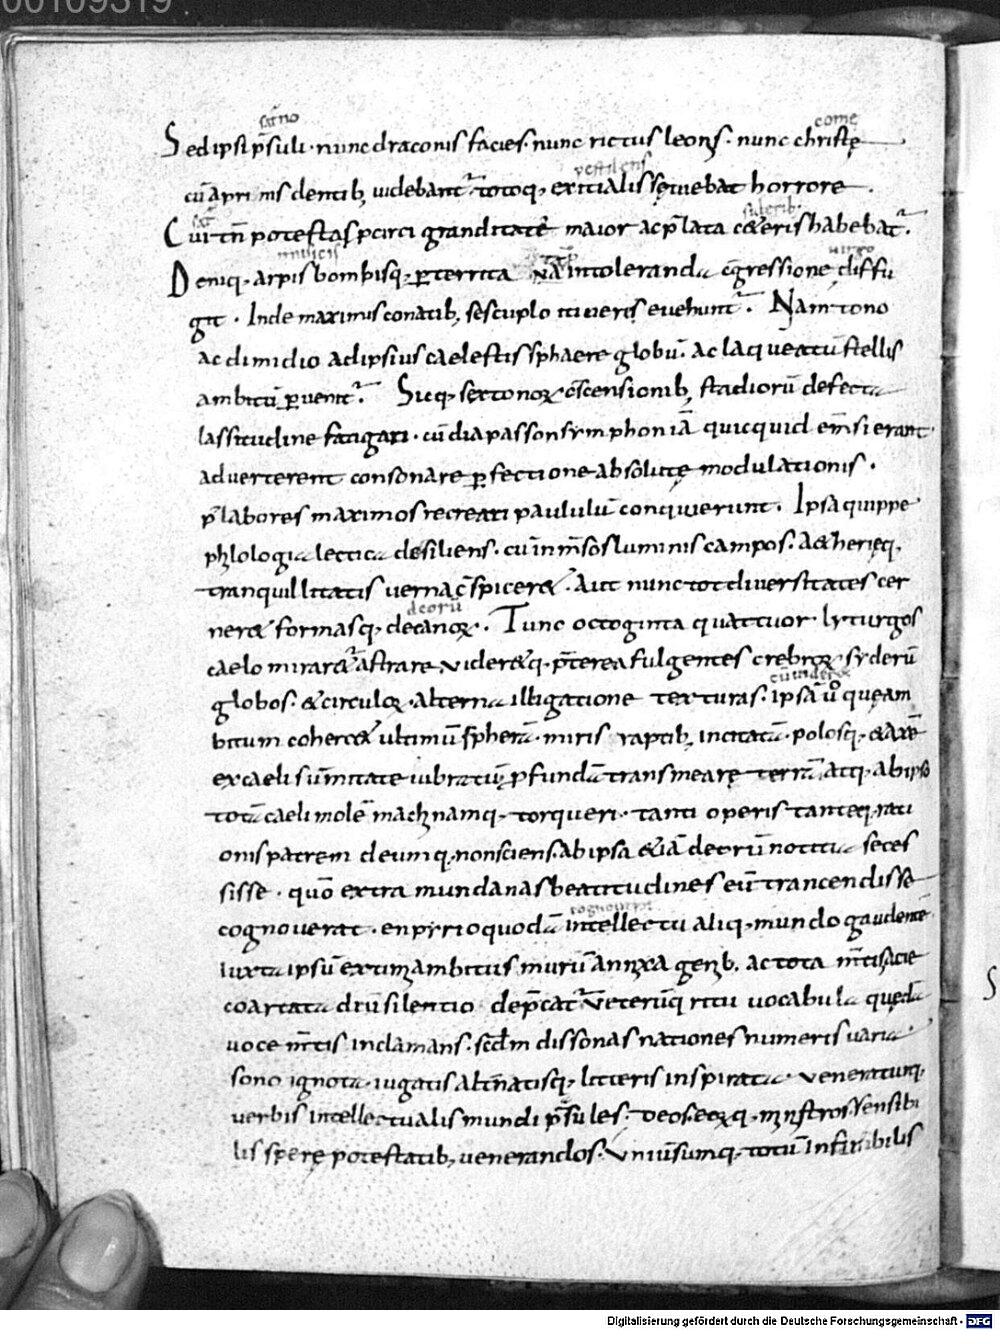 00109319
satno
come
Sed ipsi p̄suli · nunc draconis facies · nunc rictus leonis · nunc christę
pestilens
cū aprinis dentib; uidebant᷑ totoq; exitialis sęuiebat horrore .
sat
suterib;
Cui tn̄ potestas p circi granditatē maior ac p̄lata c&eris habebat᷑ .
musicis
uirgo
Deniq; arpis bombisq; ꝑterrita intoleranda c̄gressione diffu
git . Inde maximis conatib; sescuplo itineris euehunt᷑ . Nam tono
ac dimidio ad ipsius caelestis sphaere globū · ac laqueatū stellis
ambitū ꝑuenit᷑ . Sicq; sex tonoꝝ c̄scensionib; stadiorū defecta
lassitudine fatigari · cū diapasson symphoniā quicquid emsi erant
aduerterent consonare ꝑfectione absolutę modulationis .
p̄ labores maximos recreari paululū conquierunt . Ipsa quippe
phlologia lectica desiliens · cū inm̄sos luminis campos · a&herięq;
tranquillitatis uerna c̄spicer& · Aut nunc tot diuersitates cer
decorū
ner& formasq; decanoꝝ . Tunc octoginta quattuor lyturgos
caelo mirar& astrare uider&q; p̄terea fulgentes crebroꝝ syderū
cū uider&
globos · & circuloꝝ alterna illigatione texturas · ipsā ū quęam
bitum coherc& ultimū spherā · miris raptib; incitatā · polosq; & axē
ex caeli sūmitate uibratū ꝓfundā transmearę terrā atq; ab ipso
totā caeli molē machnamq; torqueri · tanti operis tanteq; rati
onis patrem deumq; non sciens ab ipsa &iā deorū notitia seces
sisse · quō extra mundanas beatitudines eū trancendisse
cognouerat
cognouerat · enpyrio quodā intellectualiq; mundo gaudentē
iuxta ipsū extim ambitus murū annxa genb; ac tota m̄tis acie
coartata diu silentio dep̄cat᷑ Veterūq; ritu uocabula quędā
uoce m̄tis inclamans · scdm dissonas nationes numeris uaria
sono ignota · iugatis alt̄natisq; litteris inspirata · veneraturq;
uerbis intellectualis mundi p̄sules · deos eorūq; mnistros sensibi
lis sperę potestatib; uenerandos · Vniūsumq; totū infinibilis
Digitalisierung gefördert durch die Deutsche Forschungsgemeinschaft - DFG